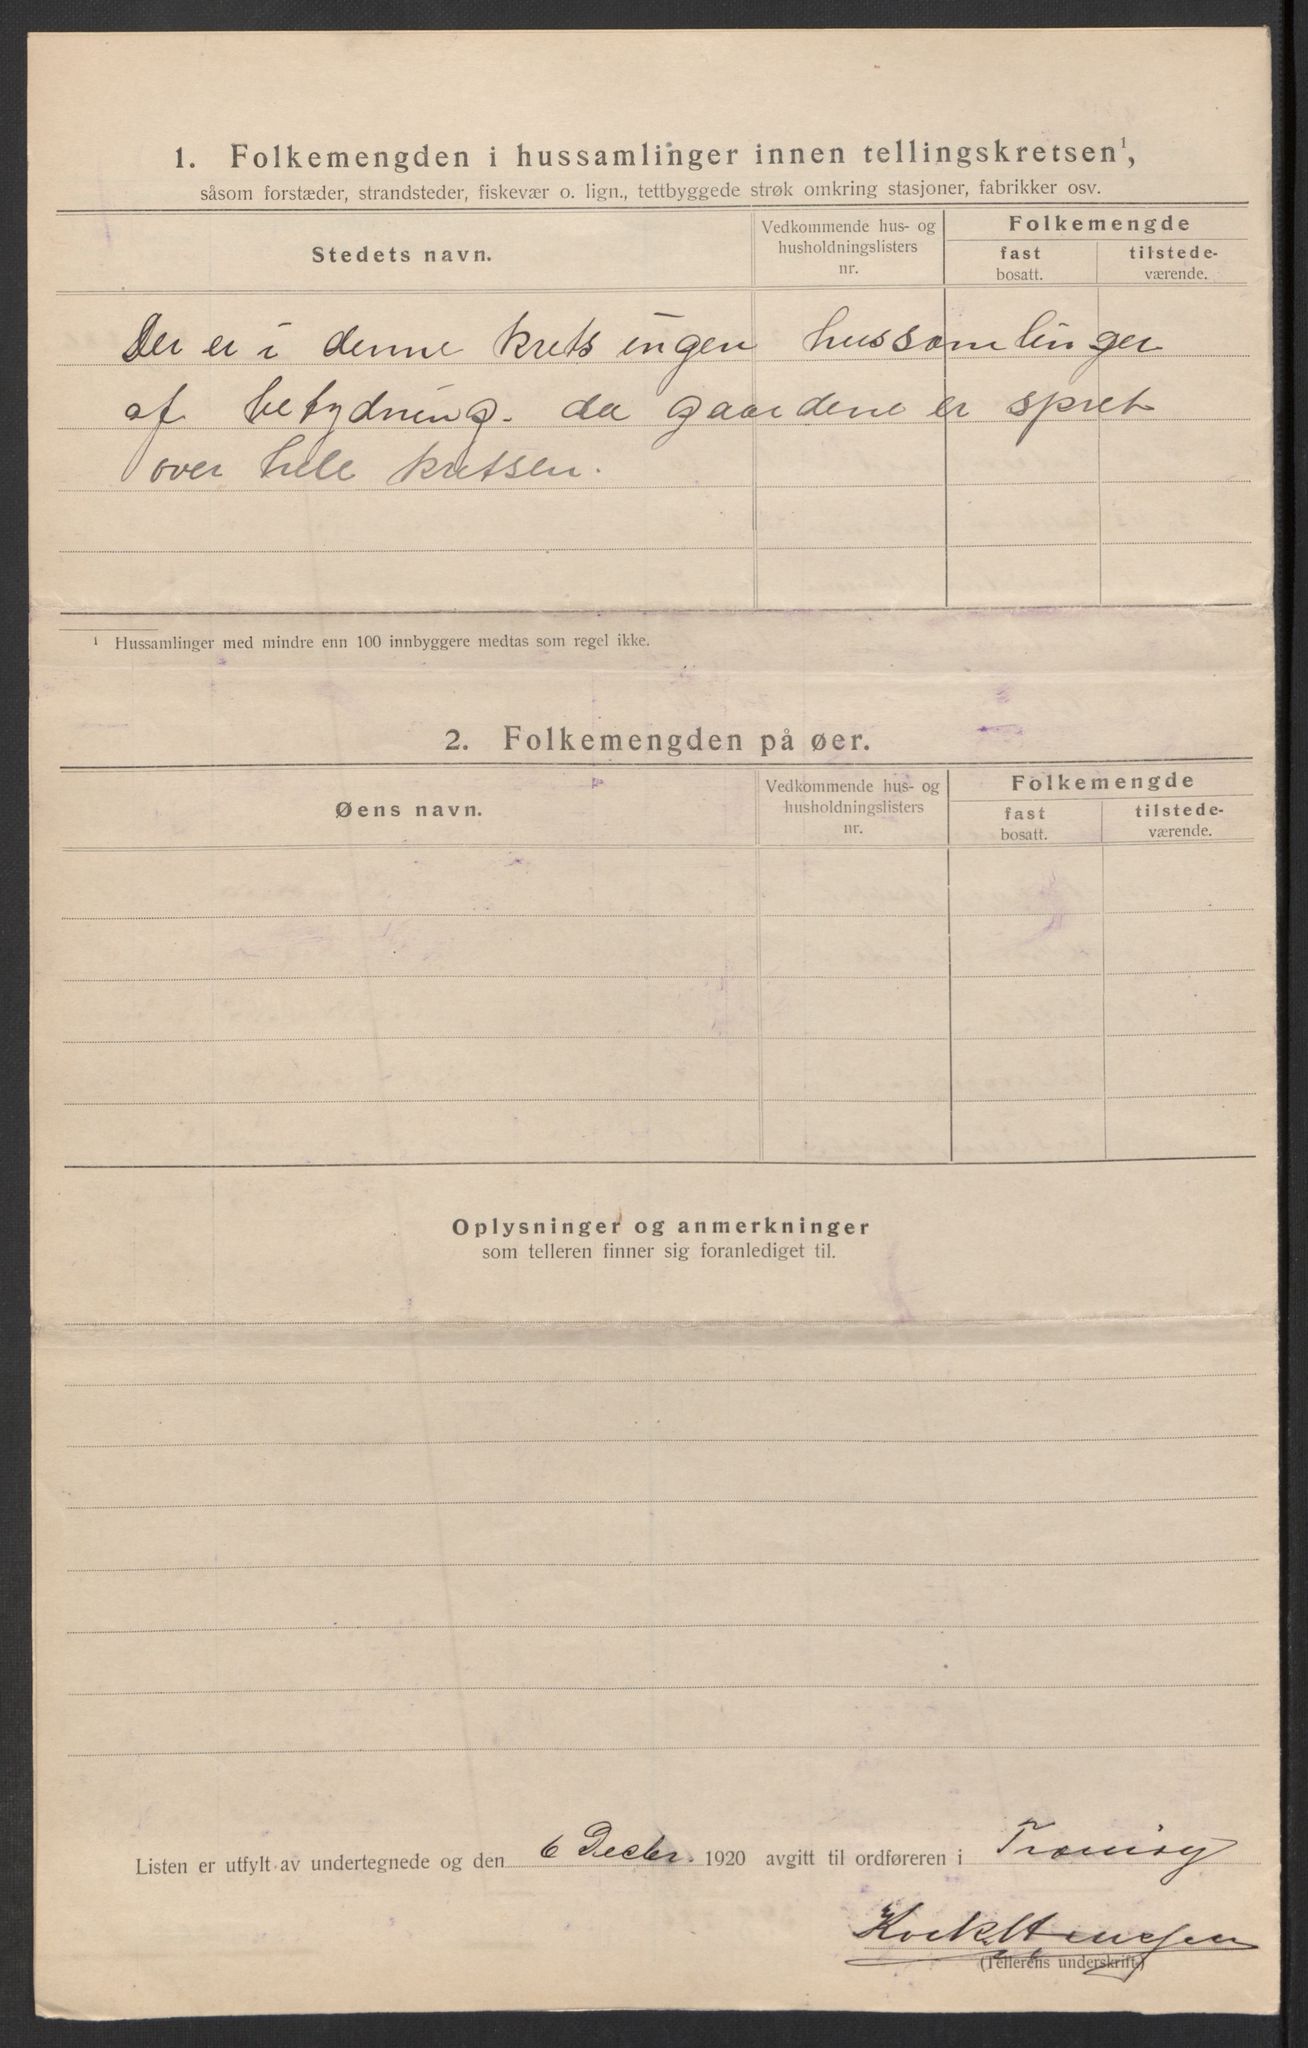 1. Folkemengden i hussamlinger innen tellingskretsen¹,
såsom forstæder, strandsteder, fiskevær o. lign., tettbyggede strøk omkring stasjoner, fabrikker osv.
Stedets navn.
Vedkommende hus- og
husholdningslisters
nr.
Folkemengde
fast
bosatt.
tilstede-
værende.
Der er i denne krets ingen hussamlinger
af betydning. da gaardene er spret
over hele kretsen.
¹ Hussamlinger med mindre enn 100 innbyggere medtas som regel ikke.
2. Folkemengden på øer.
Øens navn.
Vedkommende hus- og
husholdningslisters
nr.
Folkemengde
fast
bosatt.
tilstede-
værende.
Oplysninger og anmerkninger
som telleren finner sig foranlediget til.
Listen er utfylt av undertegnede og den 6 Decbr. 1920 avgitt til ordføreren i Tromøy
(Tellerens underskrift)